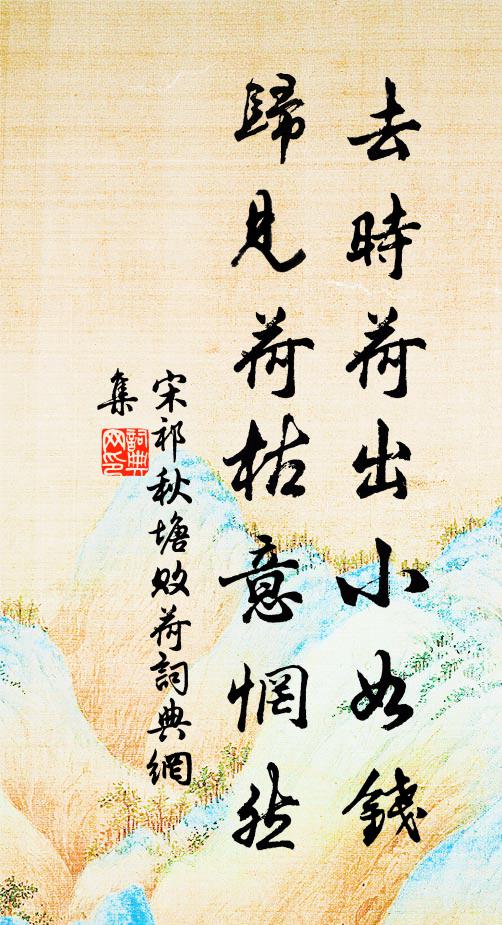 去時荷出小如錢
歸見荷枯意惘然
宋祁秋塘敗荷詞典網
集
詞典
网印